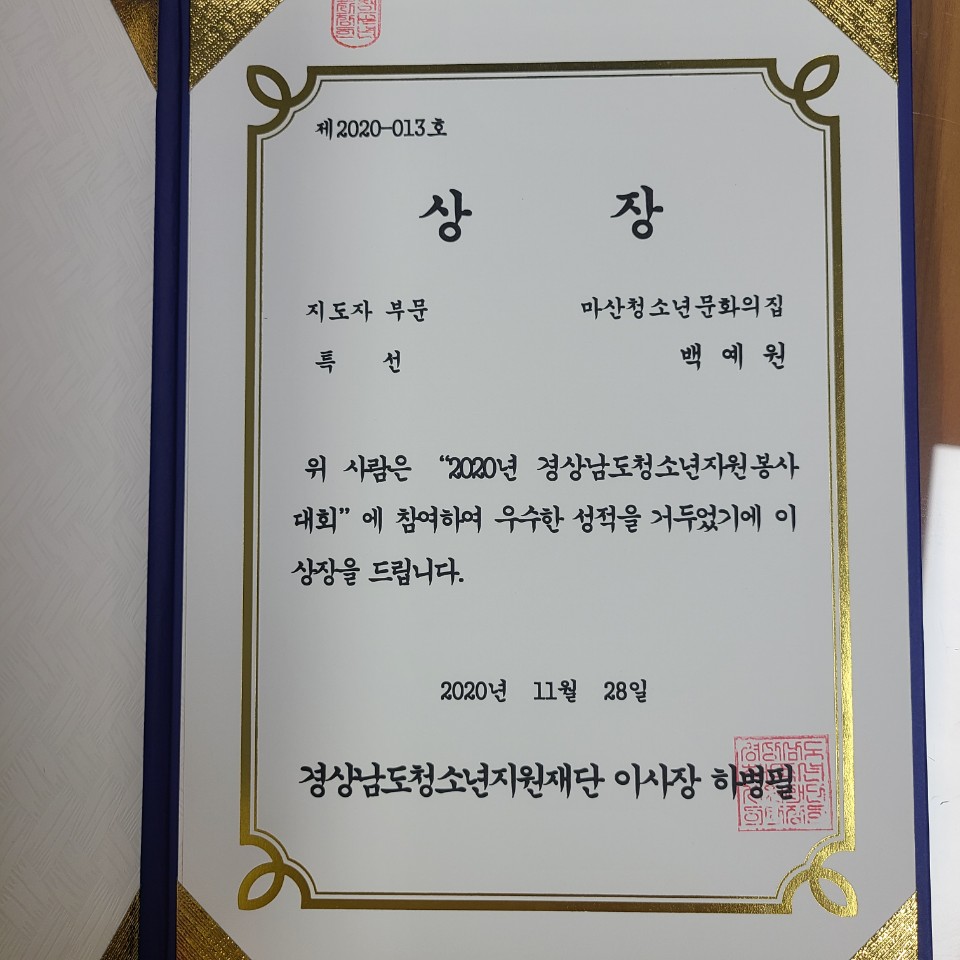 제2020-013호
상 장
지도자 부문 마산청소년문화의집
특 선 백 예 원
위 사람은 “2020년 경상남도청소년자원봉사
대회” 에 참여하여 우수한 성적을 거두었기에 이
상장을 드립니다.
2020년 11월 28일
경상남도청소년지원재단 이사장 하병필